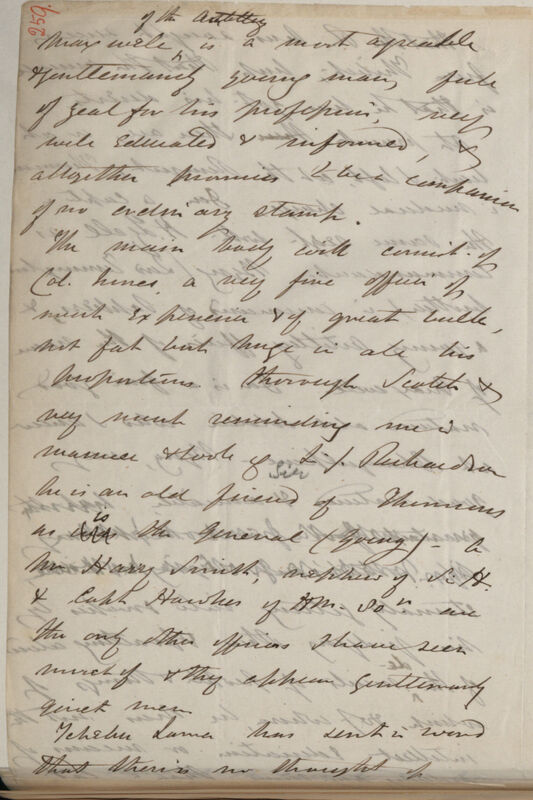 259.
of the Artillery
Maxwell, is a most agreeable
& gentlemanly young man, full
of zeal for his profession, very
well educated & informed, &
altogether promises to be a companion
of no ordinary stamp.
The main body will consist of
Col. Innes, a very fine officer of
much experience & of great bulk,
not fat but huge in all his
proportions thorough Scotch &
very much reminding me in
manner & look of Sir J. Richardson
Sir
he is an old friend of Thomsons
as is the General (Young) – a
Mr Harry Smith, nephew of Sir H.
& Capt Hawkes of HM. 80th are
the only other officers I have seen
much of & they appear gentlemanly
quiet men.
Tchebu Lama has sent in word
that there is no thought of